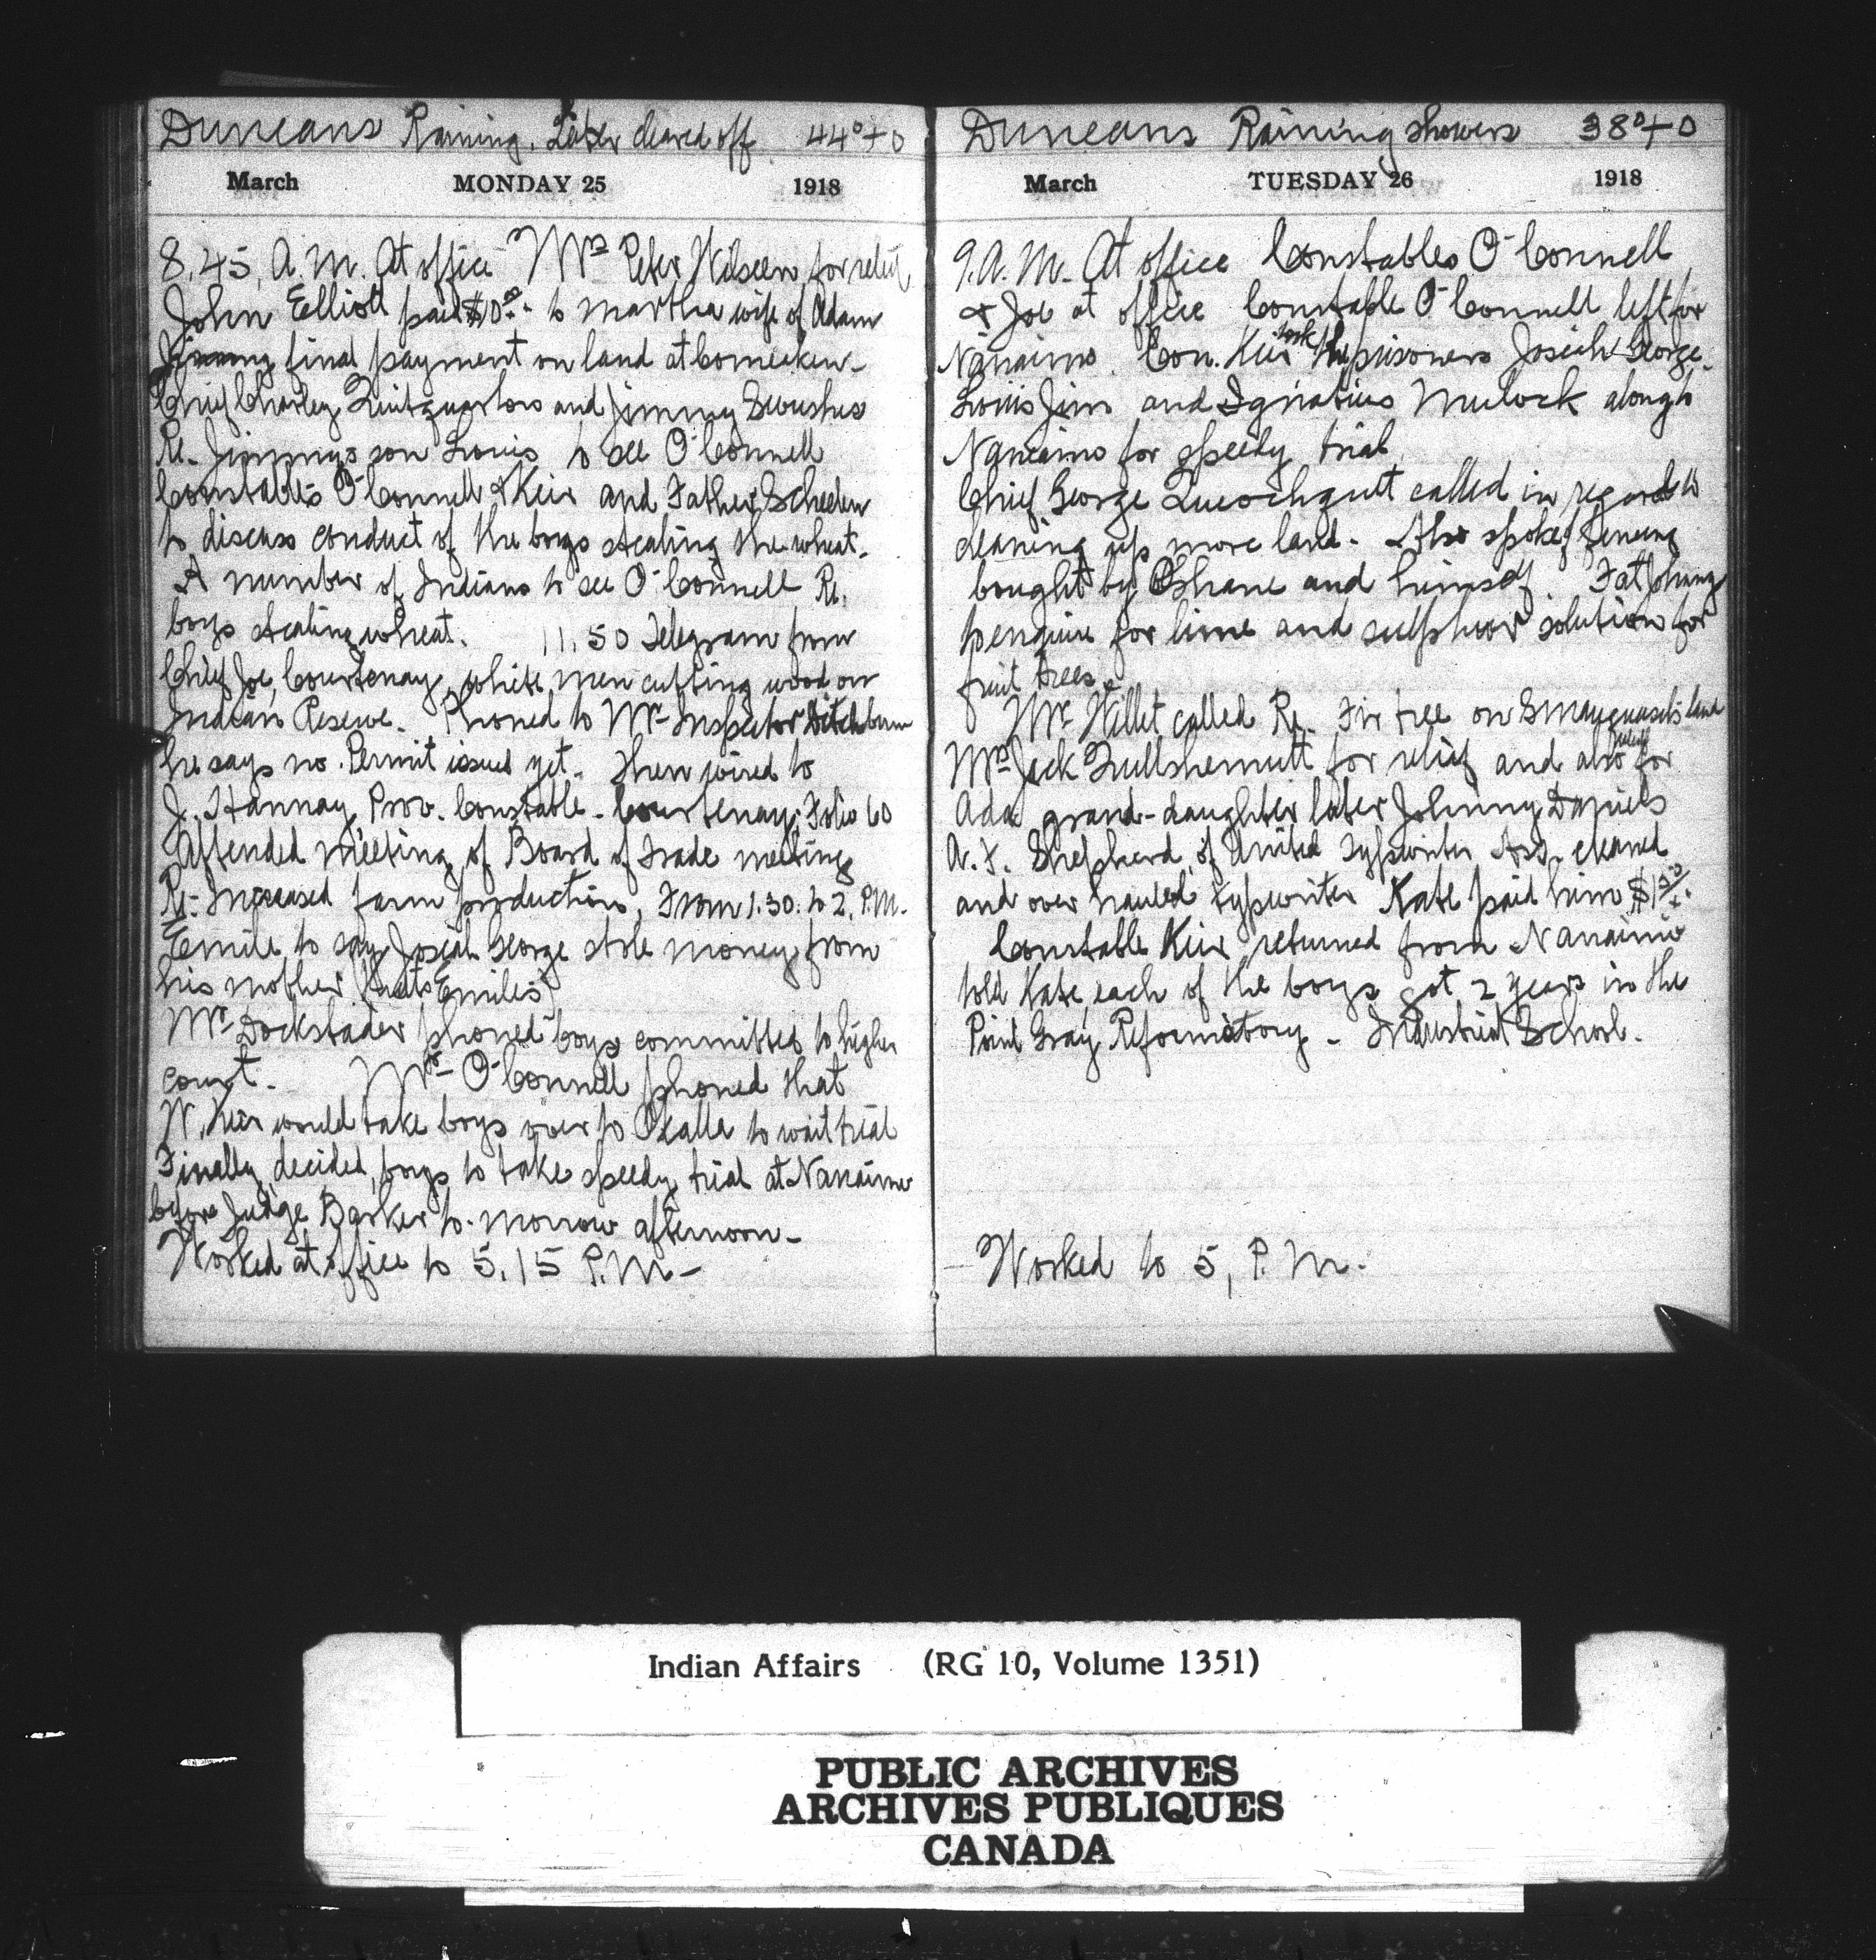 Duncans Raining. Later cleared off 44°+0
March MONDAY 25 1918
8.45, A.M. At office Mrs Peter Wilseem for relief
John Elliott paid $10.00 to Martha wife of Adam
final payment on land at Comeaken-
Chief Charley Quitquarton and Jimmy Swushus
Re- Jimmys son Louis to see O'Connell
Constables O'Connell & Keir and Father Scheelen
to discuss conduct of the boys stealing the wheat.
A number of Indians to see O'Connell Re.
boys stealing wheat. 11.50 Telegram from
Chief Joe, Courtenay, white men cutting wood on
Indian Reserve. Phoned to Mr Inspector Ditchburn
he says no. Permit issued yet. Then wired to
J. Hannay Prov. Constable - Courtenay: Folio 60
Attended meeting of Board of Trade meeting
Re- Increased farm production, From 1.30. to 2, P.M.
Emile to say Josiah George stole money from
his mother (that's Emiles)
Mr Dockstader phoned boys committed to higher
court. Mr O'Connell phoned that
W. Keir would take boys over to Okalla to wait trial
Finally decided, boys to take speedy trial at Nanaimo
before Judge Barker to-morrow afternoon-
Worked at office to 5.15 P.M-
Duncans Raining showers 38°+0
March TUESDAY 26 1918
9.A.M- At office Constables O'Connell
& Joe at office Constable O'Connell left for
Nanaimo. Con. Keir took the prisoners Josiah George.
Louis Jim and Ignatius Mulock along to
Nanaimo for speedy trial
Chief George called in regards to
cleaning up more land- Also spoke of fencing
bought by OShane and himself. Fat Johnny
to enquire for lime and sulphur solution for
fruit trees.
Mr. Willet called Re. Fir tree on land
Mrs Jack for relief and also relief for
Ada grand-daughter later Johnny Daniels
A.F. Shepherd of United Typewriter Ass. cleaned
and over hauled typewriter Kate paid him
Constable Keir returned from Nanaimo
told Kate, each of the boys got 2 years in the
Point Gray Reformatory - Industrial School.
Worked to 5, P.M.
Indian Affairs (RG 10, Volume 1351)
PUBLIC ARCHIVES
ARCHIVES PUBLIQUES
CANADA